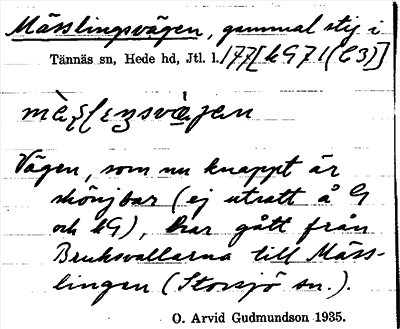 Mässlingsvägen, gammal stig i
Tännäs sn, Hede hd, Jtl. l. 177 [kG 71 (C3)]
Vägen, som nu knappt är
skönjbar (ej utsatt å G
och kG), har gått från
Bruksvallarna till Mäss-
lingen (Storsjö sn.).
O. Arvid Gudmundson 1935.